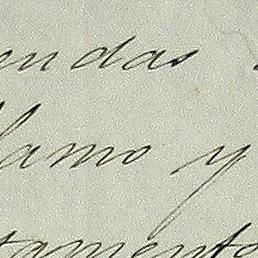 endas
lamo y
tamento